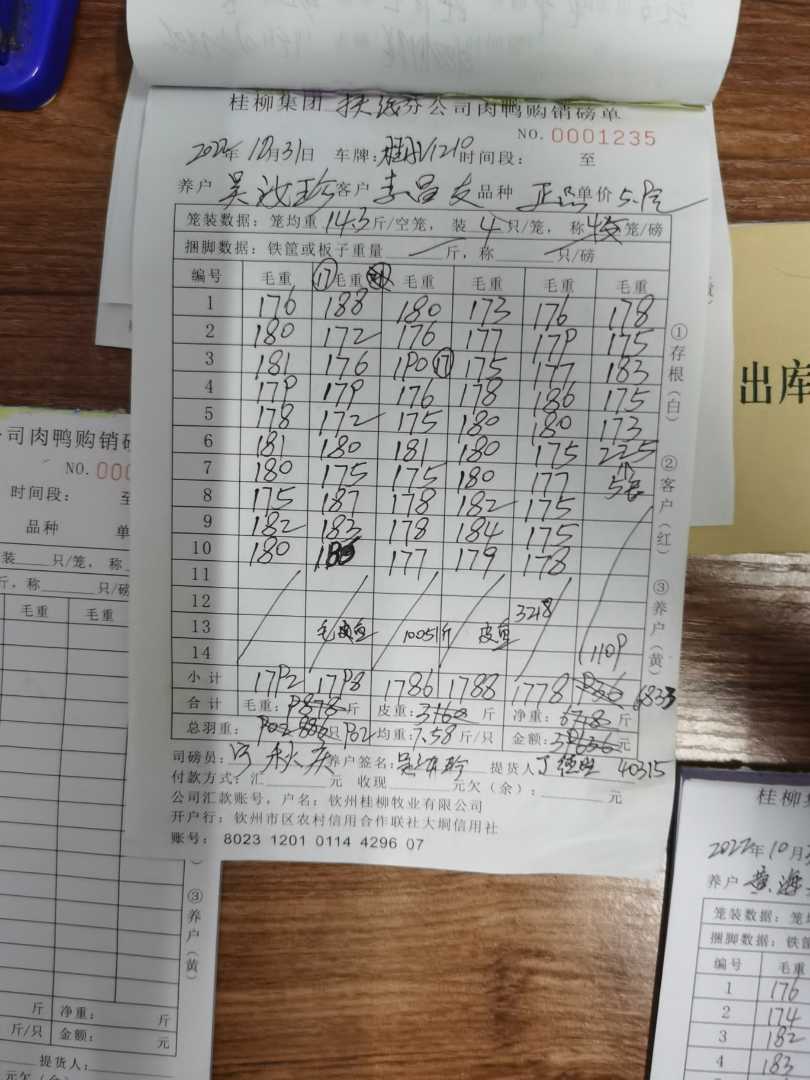 桂柳集团 扶绥分公司肉鸭购销磅单
NO. 0001235
2022年 10月31日 车牌: 时间段: 至
养户 吴汝珍 客户 李昌友 品种 正品 单价 5.9元
笼装数据: 笼均重 14.3 斤/空笼, 装 4 只/笼, 称 笼/磅
捆脚数据: 铁筐或板子重量 斤, 称 只/磅
编号 毛重 ⑰毛重 毛重 毛重 毛重 毛重
1 176 188 180 173 176 178
2 180 172 176 177 179 175
3 181 176 190 ⑰ 175 177 183
4 179 179 176 178 186 175
5 178 172 175 180 180 173
6 181 180 181 180 175 225
7 180 175 175 180 177 5笼
8 175 187 178 182 175
9 182 183 178 184 175
10 180 177 179 178
11
12 3218
13 10051斤
14 1109
小计 1792 1798 1786 1788 1778 6833
合计 毛重: 9878 斤 皮重: 3160 斤 净重: 斤
总羽重: 886 只 902 均重: 7.58 斤/只 金额: 元
司磅员: 养户签名: 吴汝珍 提货人 40315
付款方式: 汇 元 收现 元欠(余): 元
公司汇款账号, 户名: 钦州桂柳牧业有限公司
开户行: 钦州市区农村信用合作联社大垌信用社
账号: 8023 1201 0114 4296 07
①存根(白) ②客户(红) ③养户(黄)
出库
公司肉鸭购销磅
NO. 000
时间段: 至
品种 单
装 只/笼, 称
斤, 称 只/磅
毛重 毛重
③养户(黄)
斤 净重: 斤
斤/只 金额: 元
提货人:
元欠(余)
桂柳集
2022年 10月
养户 黄海
笼装数据: 笼均
捆脚数据: 铁
编号 毛重
1 176
2 174
3 182
4 183